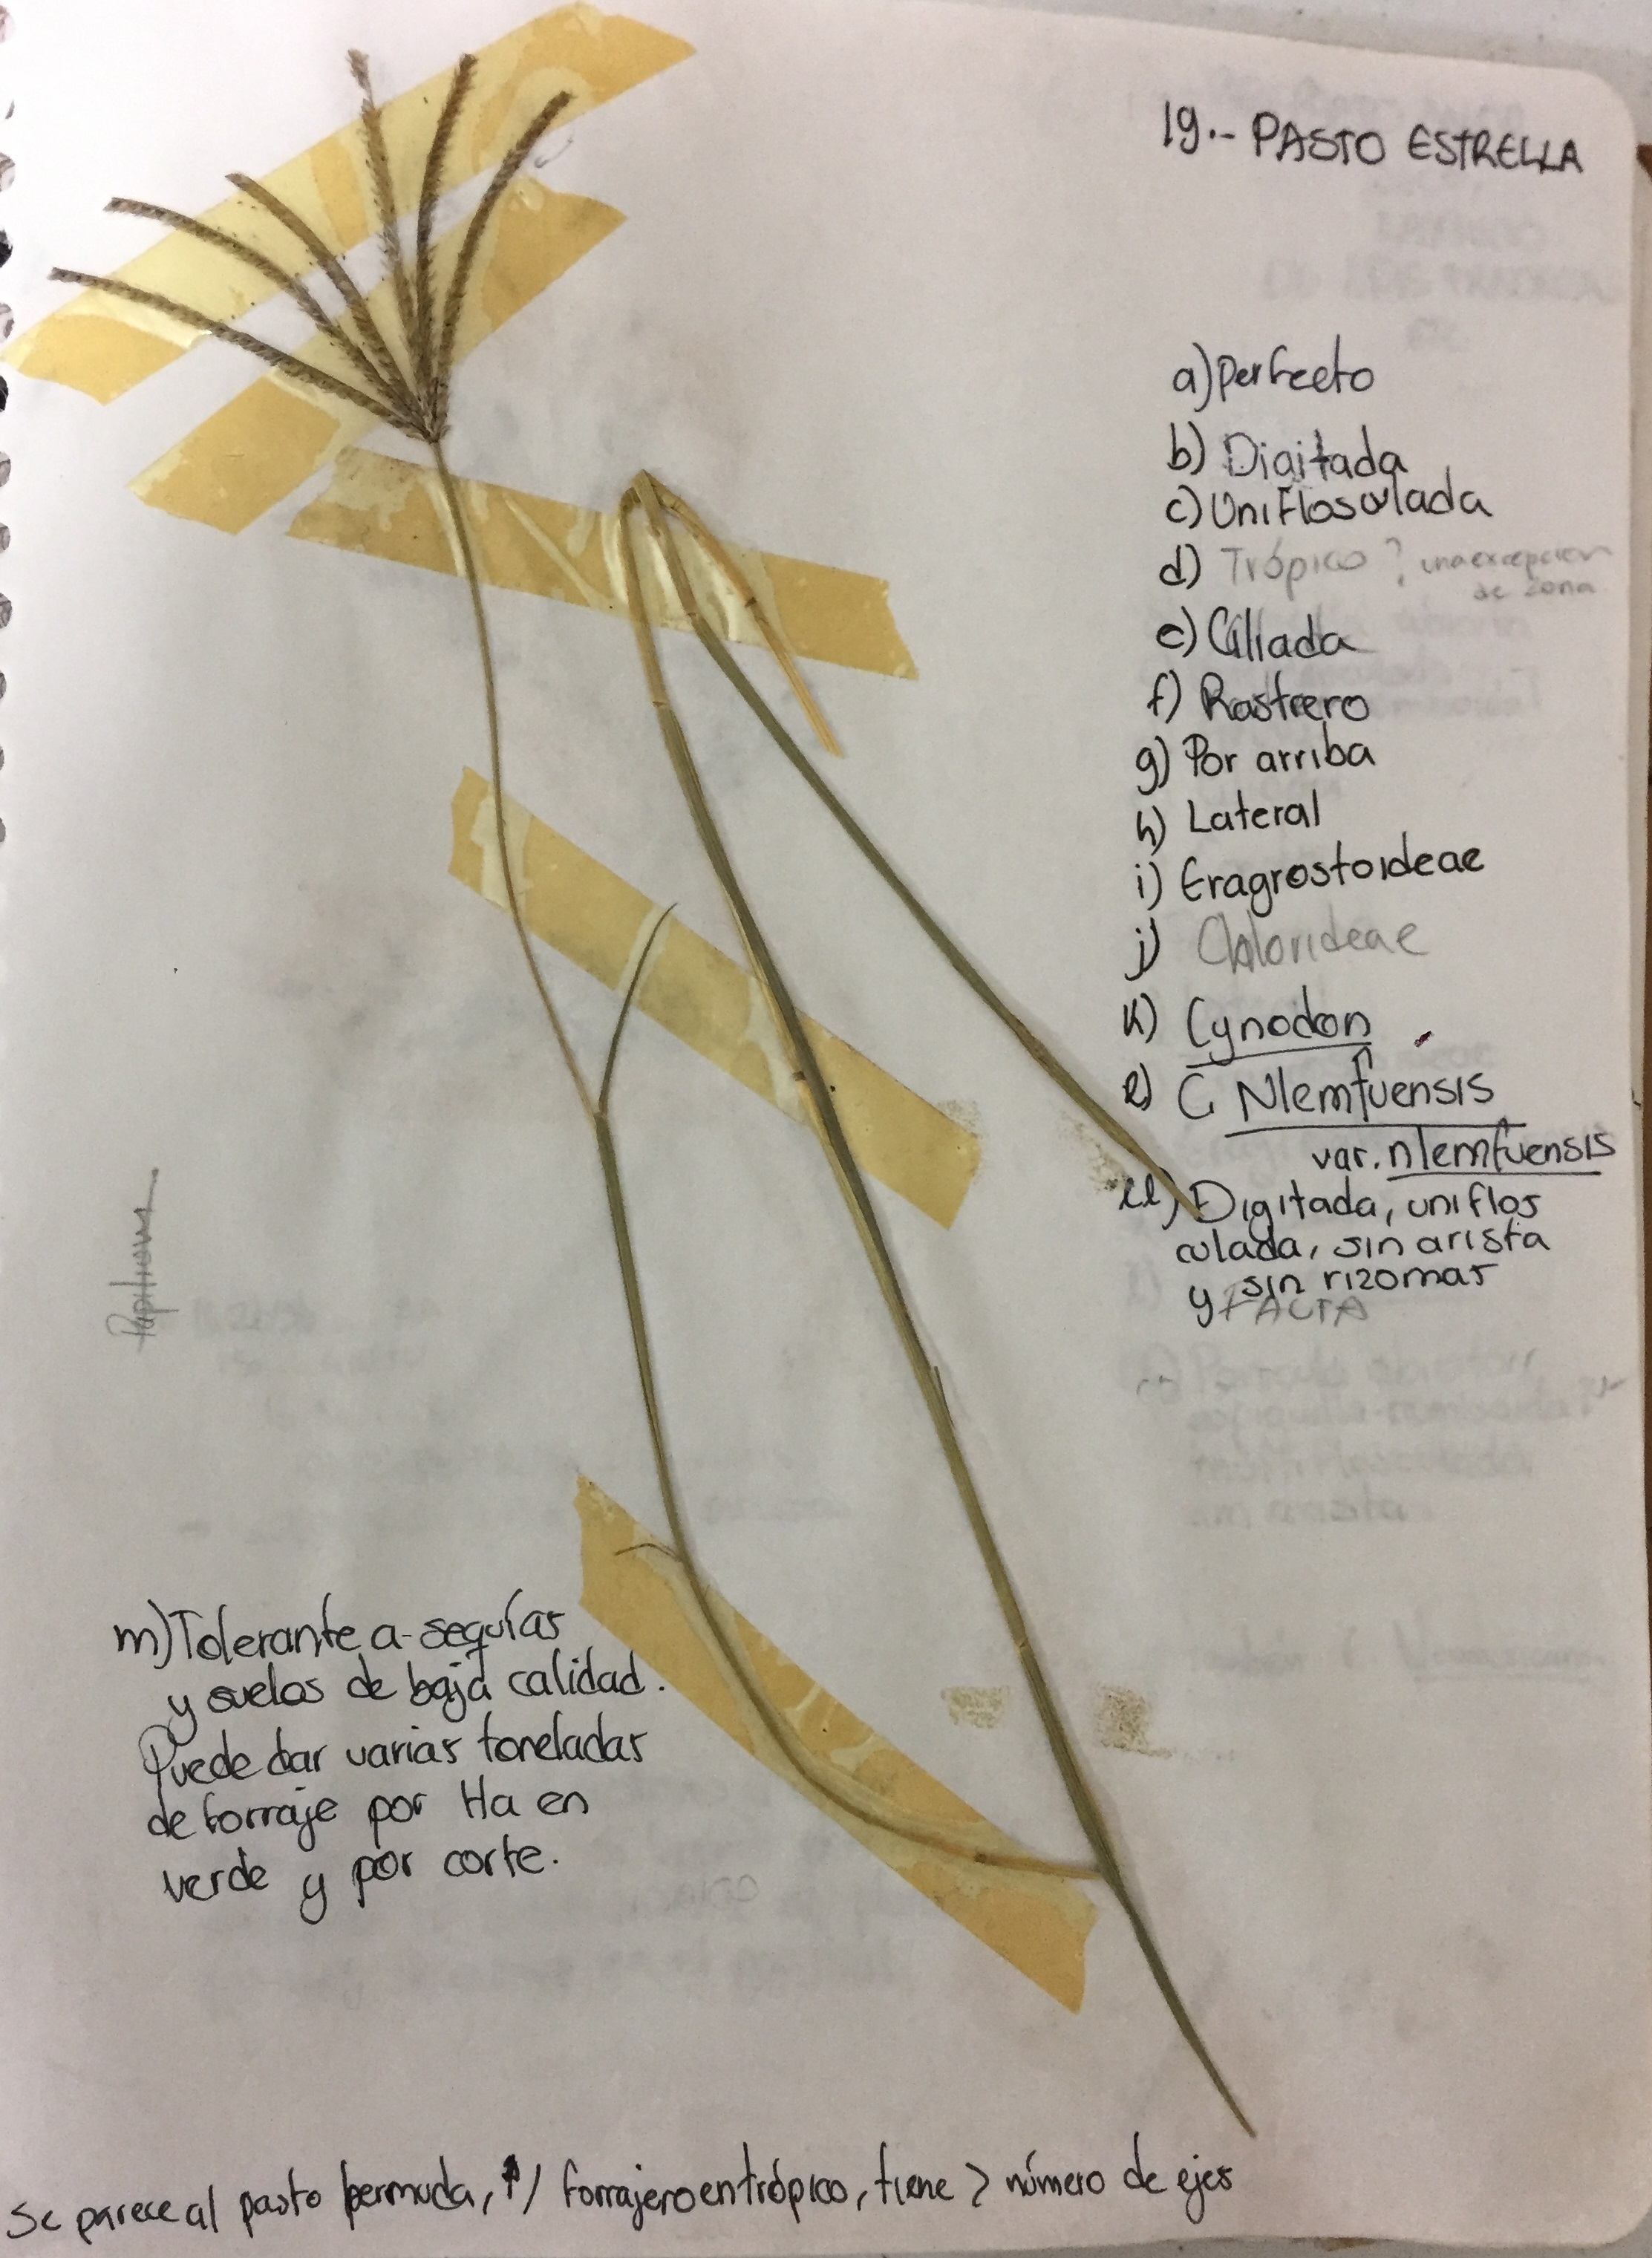 19.- PASTO ESTRELLA
a) Perfecto
b) Digitada
c) Uniflosculada
d) Trópico ? una excepcion
de zona
e) Ciliada
f) Rastrero
g) Por arriba
h) Lateral
i) Eragrostoideae
j) Chlorideae
k) Cynodon
l) C. Nlemfuensis
var. nlemfuensis
ll) Digitada, uniflos
culada, sin arista
y sin rizomas
FALTA
m) Tolerante a sequías
y suelos de baja calidad.
Puede dar varias toneladas
de forraje por Ha en
verde y por corte.
Se parece al pasto bermuda, ↑/ forrajero entrópico, tiene > número de ejes